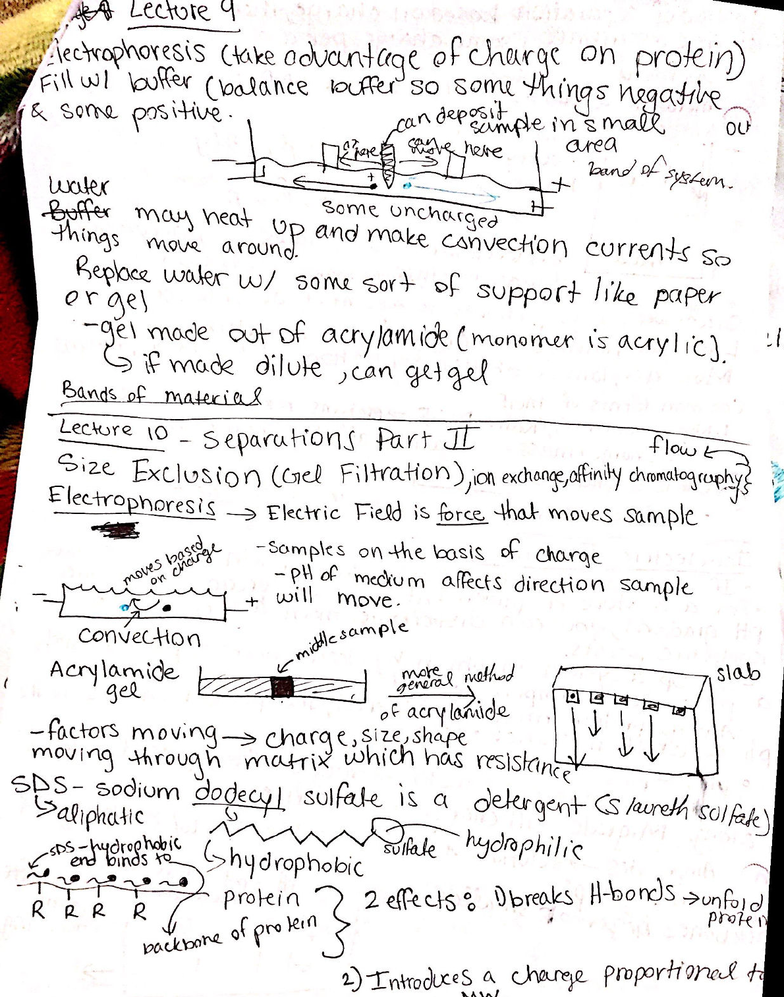 Lecture 9
Electrophoresis (take advantage of charge on protein)
Fill w/ buffer (balance buffer so some things negative
& some positive.
can deposit
sample in small
area
or here
can move here
band of system.
ou
+
+
Some uncharged
Water
Buffer may heat up and make convection currents so
things move around.
Replace water w/ some sort of support like paper
or gel
-gel made out of acrylamide (monomer is acrylic).
if made dilute, can get gel
Bands of material
Lecture 10 - Separations Part II
flow
Size Exclusion (Gel Filtration), ion exchange, affinity chromatography
Electrophoresis → Electric Field is force that moves sample
moves based
on charge
-Samples on the basis of charge
-pH of medium affects direction sample
will move.
- +
convection
middle sample
Acrylamide
gel
more
general method
of acrylamide
slab
-factors moving → charge, size, shape
moving through matrix which has resistance
SDS- sodium dodecyl sulfate is a detergent (slaureth sulfate)
aliphatic
sulfate
hydrophilic
hydrophobic
SDS-hydrophobic
end binds to
R R R R
protein
backbone of protein
2 effects: 1) breaks H-bonds → unfold
protein
2) Introduces a charge proportional to
MW